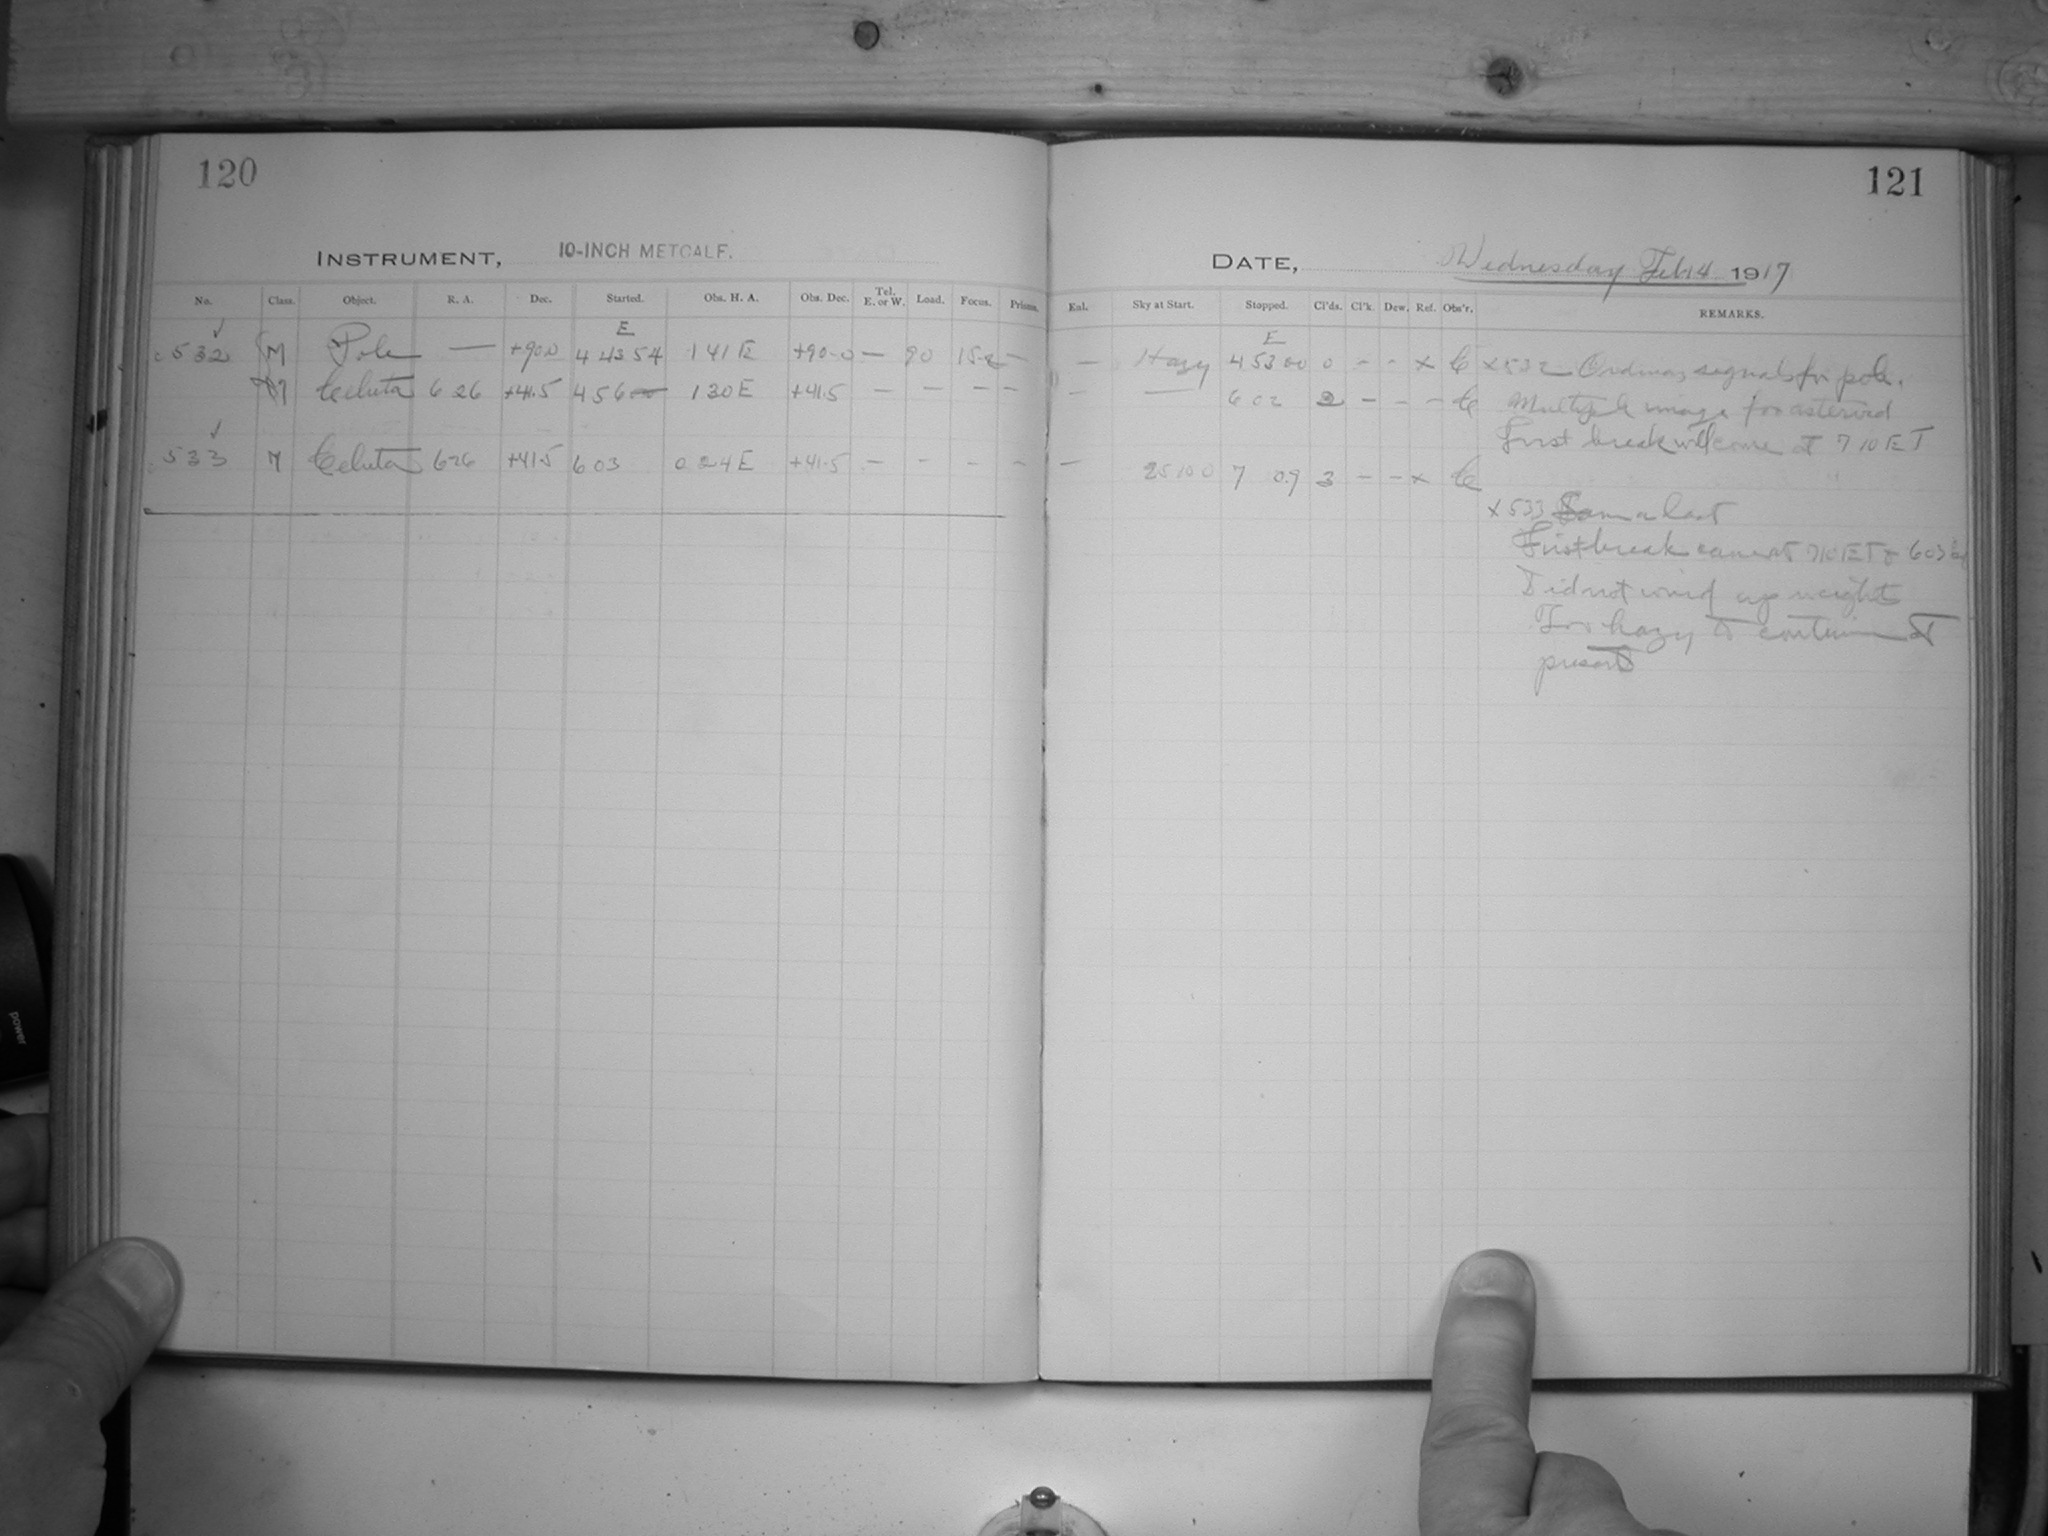 120
121
INSTRUMENT, 10-INCH METCALF.
DATE, Wednesday Feb 14 1917
No. Class. Object. R. A. Dec. Started. Obs. H. A. Obs. Dec. Tel. E. or W. Load. Focus. Prisms. Enl. Sky at Start. Stopped. Cl'ds. Cl'k. Dew. Ref. Obs'r. REMARKS.
E E
532 M Pole — +90.0 4 43 54 1 41 E +90.0 — 90 15.2 — — Hazy 4 53 00 0 - - x C x532 Ordinary signals for pole.
M Celuta 6 26 +41.5 4 56 1 30 E +41.5 — — — — — — 6 02 2 - - - C Multiple image for asteroid
First break will come at 7 10 ET
533 M Celuta 6 26 +41.5 6 03 0 24 E +41.5 — - - - — 25 10 0 7 09 3 - - x C
x533 Same as last
First break came at 7 10 ET & 603
Did not wind up weights
Too hazy to continue at
present
power